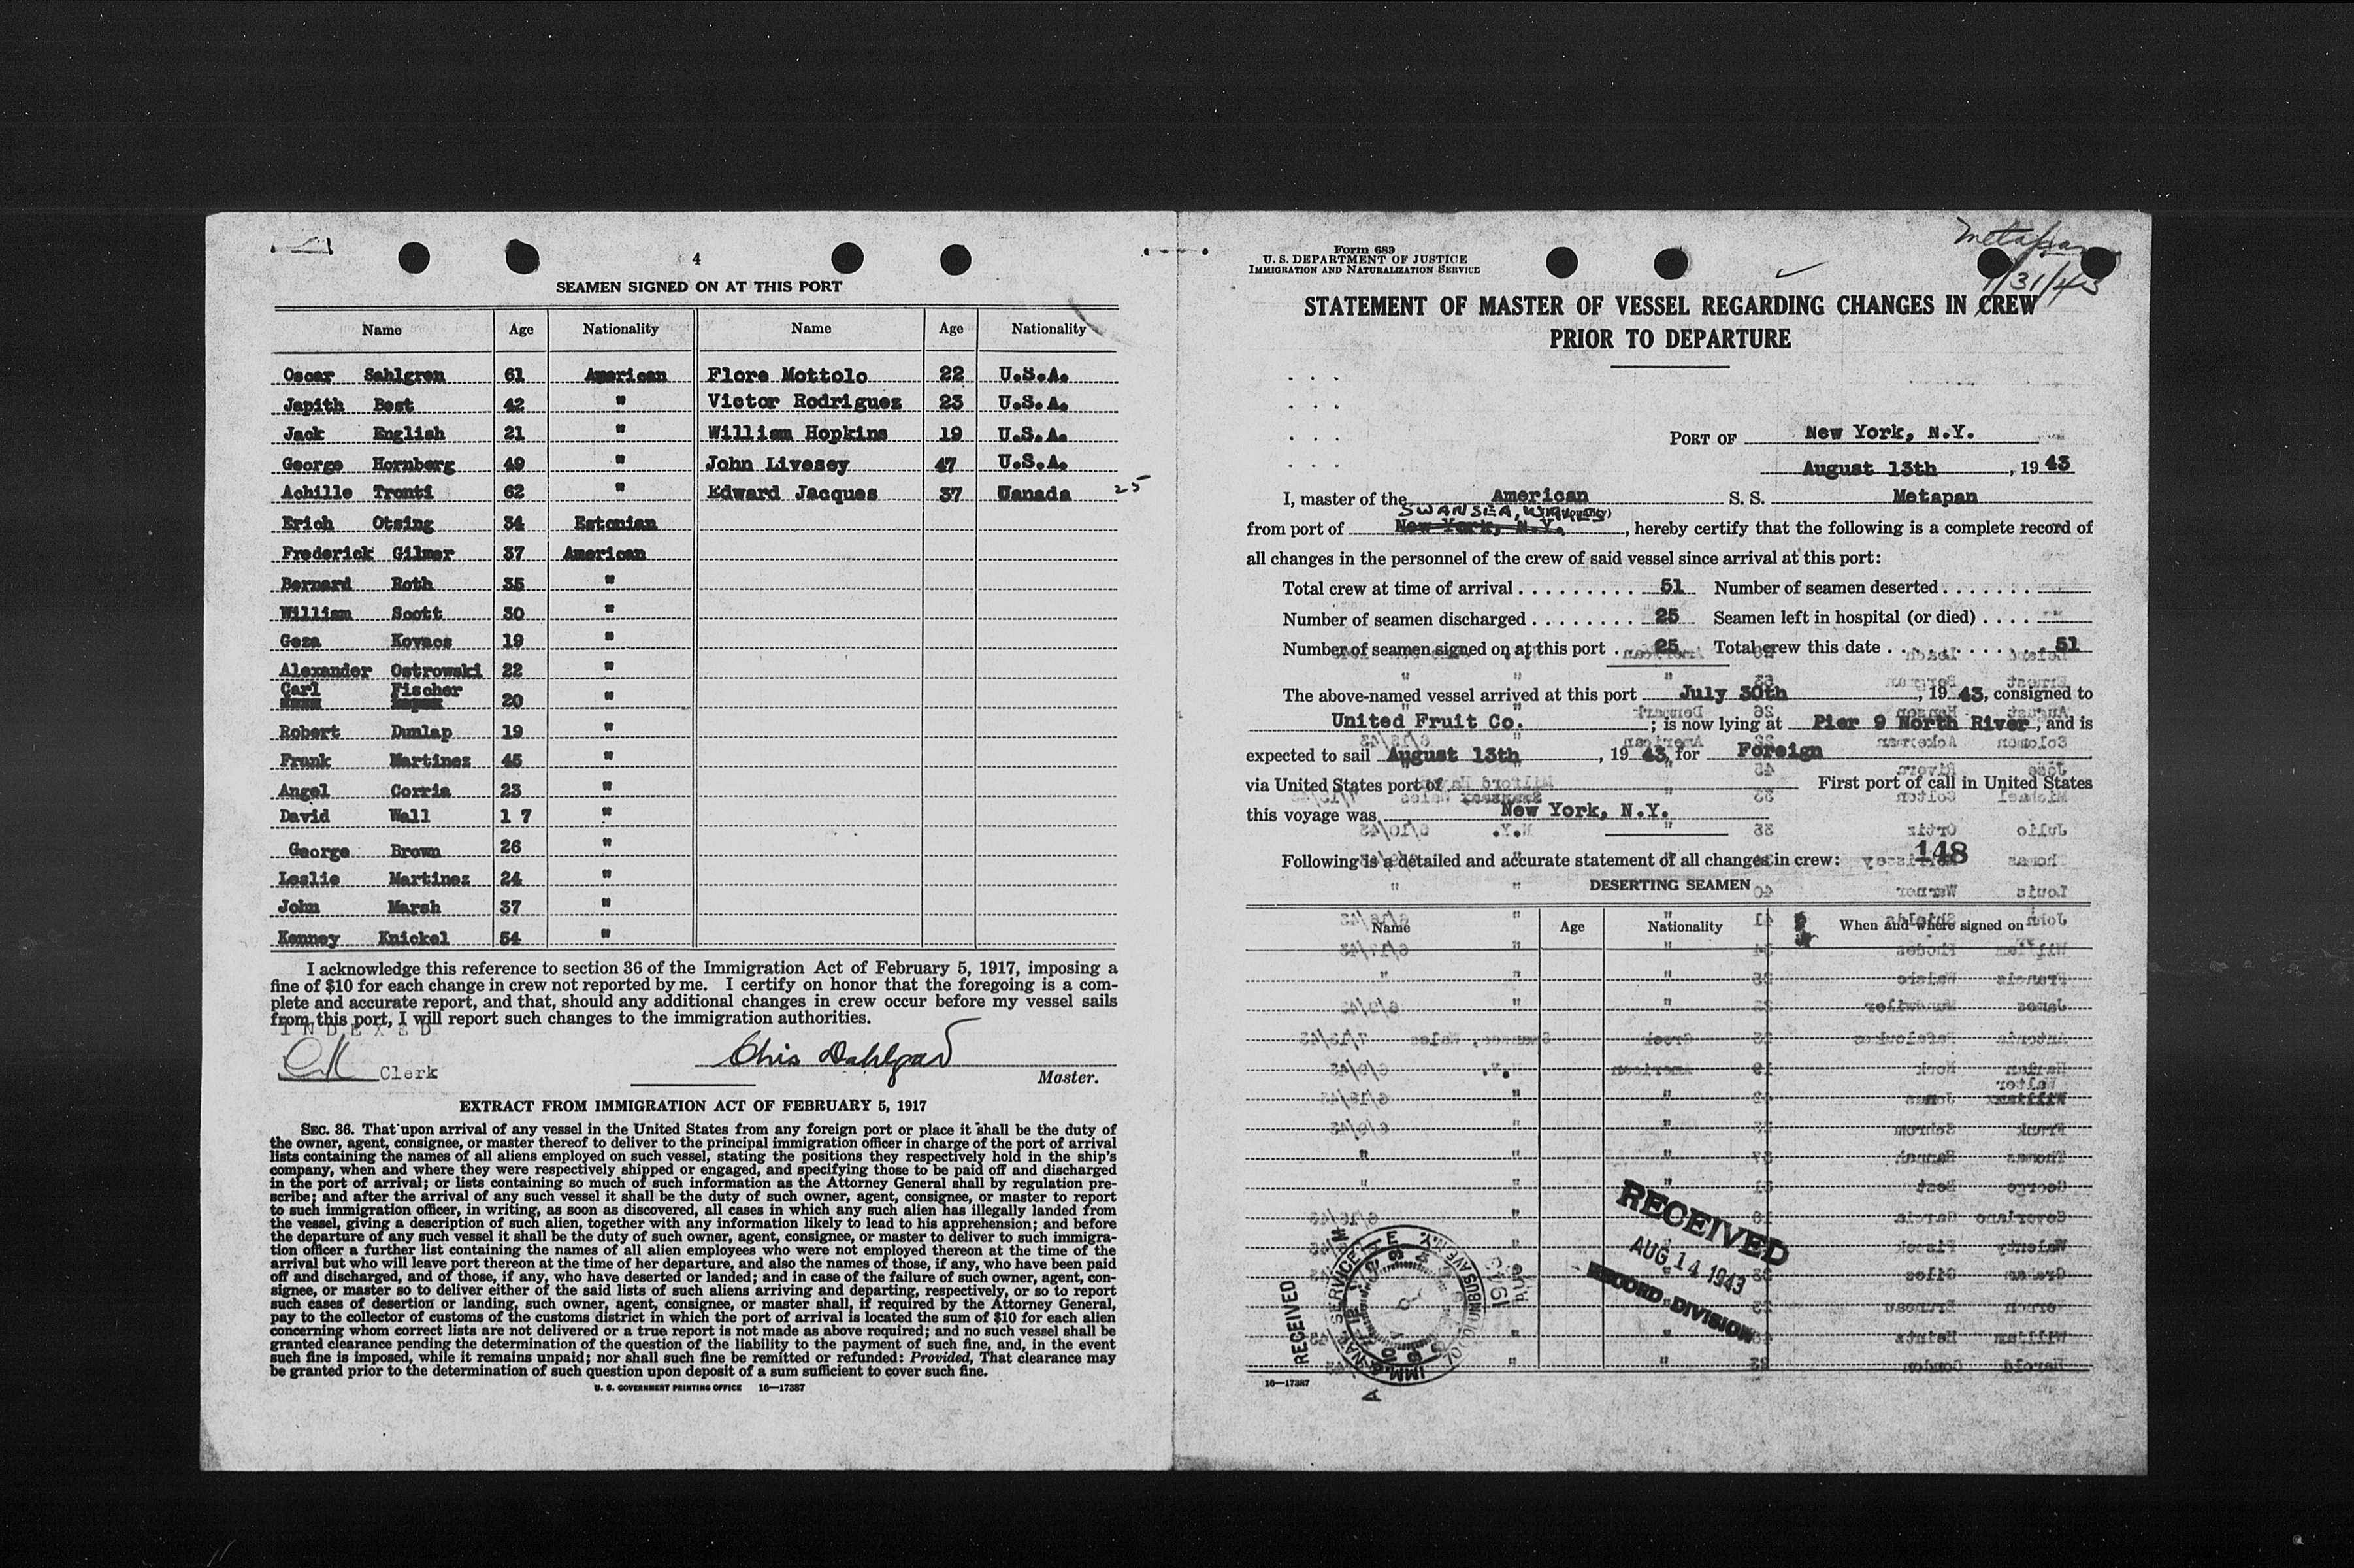 4
SEAMEN SIGNED ON AT THIS PORT
Name Age Nationality Name Age Nationality
Oscar Sahlgren 61 American Flore Mottolo 22 U.S.A.
Japith Best 42 " Victor Rodriguez 23 U.S.A.
Jack English 21 " William Hopkins 19 U.S.A.
George Hornberg 49 " John Livesey 47 U.S.A.
Achille Tronti 62 " Edward Jacques 37 Canada 25
Erich Otsing 34 Estonian
Frederick Gilmer 37 American
Bernard Roth 35 "
William Scott 30 "
Geza Kovacs 19 "
Alexander Ostrowski 22 "
Carl Fischer 20 "
Robert Dunlap 19 "
Frank Martinez 45 "
Angel Corria 23 "
David Wall 1 7 "
George Brown 26 "
Leslie Martinez 24 "
John Marsh 37 "
Kenney Knickel 54 "
I acknowledge this reference to section 36 of the Immigration Act of February 5, 1917, imposing a
fine of $10 for each change in crew not reported by me. I certify on honor that the foregoing is a com-
plete and accurate report, and that, should any additional changes in crew occur before my vessel sails
from this port, I will report such changes to the immigration authorities.
INDEXED
Clerk
Chis Dahlgard
Master.
EXTRACT FROM IMMIGRATION ACT OF FEBRUARY 5, 1917
SEC. 36. That upon arrival of any vessel in the United States from any foreign port or place it shall be the duty of
the owner, agent, consignee, or master thereof to deliver to the principal immigration officer in charge of the port of arrival
lists containing the names of all aliens employed on such vessel, stating the positions they respectively hold in the ship's
company, when and where they were respectively shipped or engaged, and specifying those to be paid off and discharged
in the port of arrival; or lists containing so much of such information as the Attorney General shall by regulation pre-
scribe; and after the arrival of any such vessel it shall be the duty of such owner, agent, consignee, or master to report
to such immigration officer, in writing, as soon as discovered, all cases in which any such alien has illegally landed from
the vessel, giving a description of such alien, together with any information likely to lead to his apprehension; and before
the departure of any such vessel it shall be the duty of such owner, agent, consignee, or master to deliver to such immigra-
tion officer a further list containing the names of all alien employees who were not employed thereon at the time of the
arrival but who will leave port thereon at the time of her departure, and also the names of those, if any, who have been paid
off and discharged, and of those, if any, who have deserted or landed; and in case of the failure of such owner, agent, con-
signee, or master so to deliver either of the said lists of such aliens arriving and departing, respectively, or so to report
such cases of desertion or landing, such owner, agent, consignee, or master shall, if required by the Attorney General,
pay to the collector of customs of the customs district in which the port of arrival is located the sum of $10 for each alien
concerning whom correct lists are not delivered or a true report is not made as above required; and no such vessel shall be
granted clearance pending the determination of the question of the liability to the payment of such fine, and, in the event
such fine is imposed, while it remains unpaid; nor shall such fine be remitted or refunded: Provided, That clearance may
be granted prior to the determination of such question upon deposit of a sum sufficient to cover such fine.
U. S. GOVERNMENT PRINTING OFFICE 16—17387
Metapan
7/31/43
Form 689
U. S. DEPARTMENT OF JUSTICE
IMMIGRATION AND NATURALIZATION SERVICE
STATEMENT OF MASTER OF VESSEL REGARDING CHANGES IN CREW
PRIOR TO DEPARTURE
PORT OF New York, N.Y.
August 13th, 1943
I, master of the American S. S. Metapan
SWANSEA,
from port of New York, N.Y., hereby certify that the following is a complete record of
all changes in the personnel of the crew of said vessel since arrival at this port:
Total crew at time of arrival 51 Number of seamen deserted
Number of seamen discharged 25 Seamen left in hospital (or died)
Number of seamen signed on at this port 25 Total crew this date 51
The above-named vessel arrived at this port July 30th, 1943, consigned to
United Fruit Co.; is now lying at Pier 9 North River, and is
expected to sail August 13th, 1943, for Foreign
via United States port of First port of call in United States
this voyage was New York, N.Y.
Following is a detailed and accurate statement of all changes in crew: 148
DESERTING SEAMEN
Name Age Nationality When and where signed on
RECEIVED
AUG 14 1943
RECORD DIVISION
RECEIVED
70 COLUMBUS AVE N.Y.
16—17387